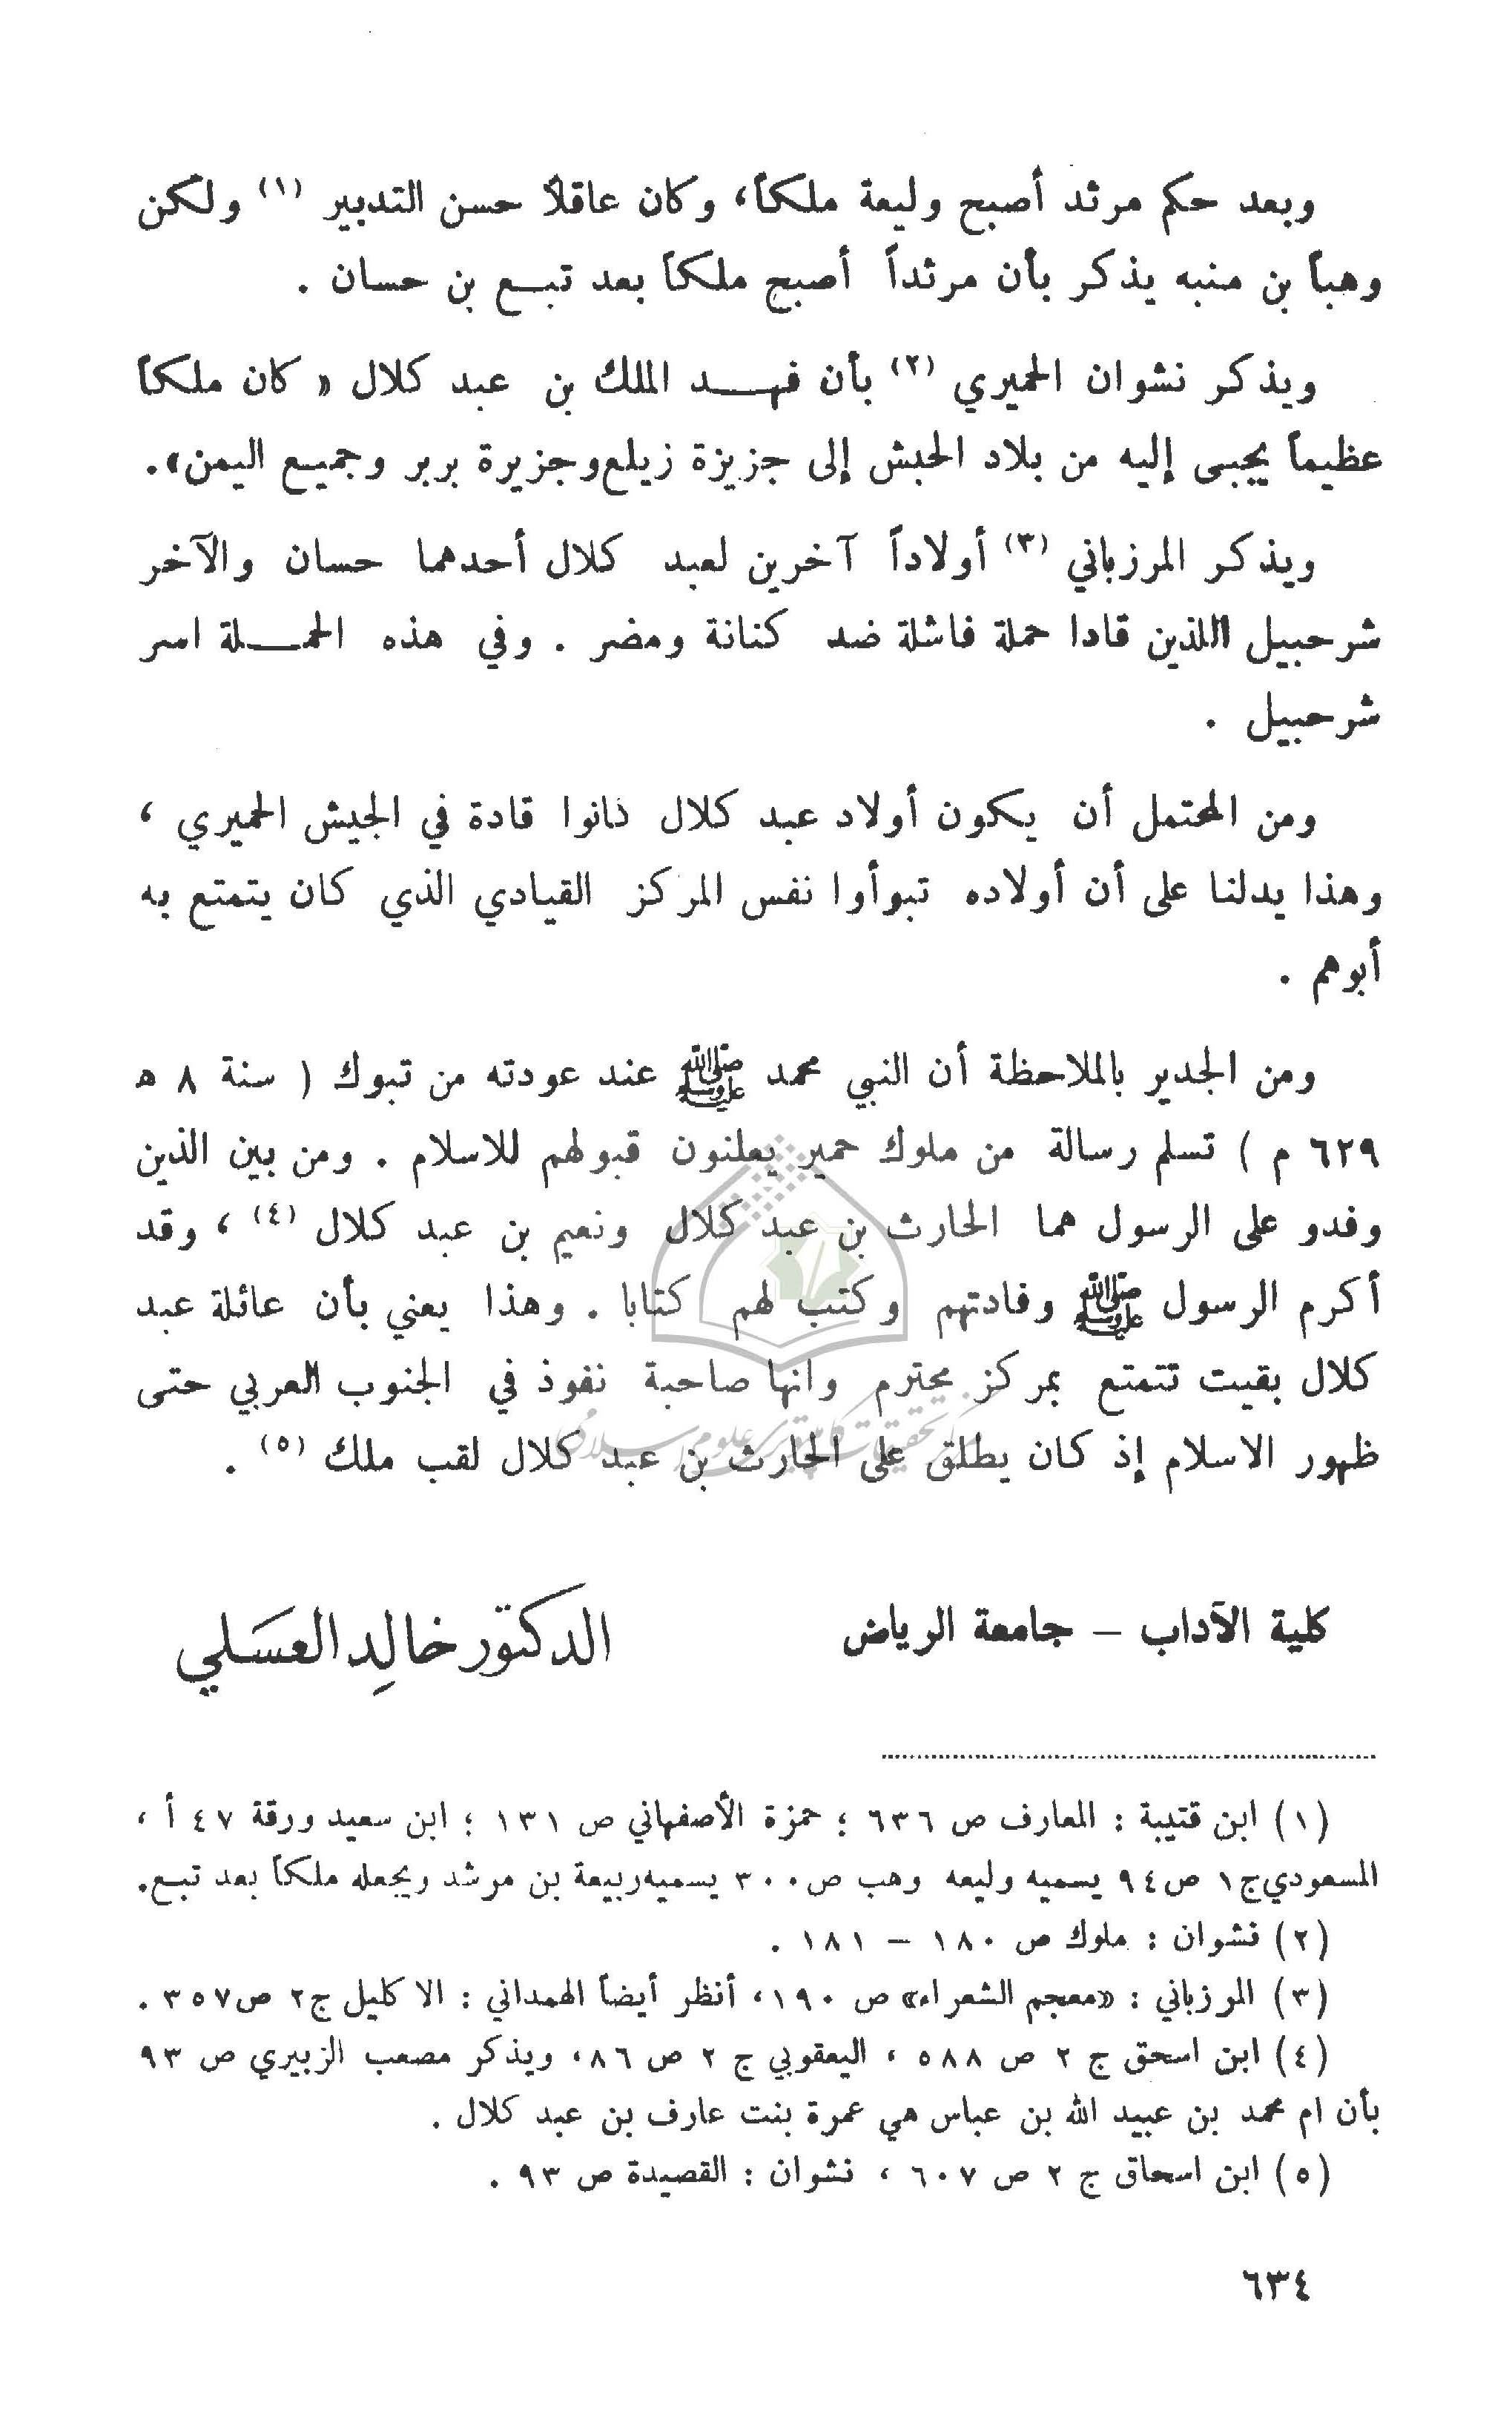 وبعد حكم مرثد أصبح وليعة ملكاً، وكان عاقلاً حسن التدبير (١) ولكن
وهباً بن منبه يذكر بأن مرثداً أصبح ملكاً بعد تبع بن حسان .
ويذكر نشوان الحميري (٢) بأن فهد الملك بن عبد كلال « كان ملكاً
عظيماً يجبى إليه من بلاد الحبش إلى جزيزة زيلع وجزيرة بربر وجميع اليمن».
ويذكر المرزباني (٣) أولاداً آخرين لعبد كلال أحدهما حسان والآخر
شرحبيل اللذين قادا حملة فاشلة ضد كنانة ومضر . وفي هذه الحملة اسر
شرحبيل .
ومن المحتمل أن يكون أولاد عبد كلال كانوا قادة في الجيش الحميري ،
وهذا يدلنا على أن أولاده تبوأوا نفس المركز القيادي الذي كان يتمتع به
أبوهم .
ومن الجدير بالملاحظة أن النبي محمد ﷺ عند عودته من تبوك ( سنة ٨ هـ
٦٢٩ م ) تسلم رسالة من ملوك حمير يعلنون قبولهم للاسلام . ومن بين الذين
وفدو على الرسول هما الحارث بن عبد كلال ونعيم بن عبد كلال (٤) ، وقد
أكرم الرسول ﷺ وفادتهم وكتب لهم كتابا . وهذا يعني بأن عائلة عبد
كلال بقيت تتمتع بمركز محترم وانها صاحبة نفوذ في الجنوب العربي حتى
ظهور الاسلام إذ كان يطلق على الحارث بن عبد كلال لقب ملك (٥) .
كلية الآداب – جامعة الرياض الدكتور خالِد العسَلي
(١) ابن قتيبة : المعارف ص ٦٣٦ ؛ حمزة الأصفهاني ص ١٣١ ؛ ابن سعيد ورقة ٤٧ أ ،
المسعودي ج١ ص٩٤ يسميه وليعه وهب ص٣٠٠ يسميه ربيعة بن مرشد ويجعله ملكاً بعد تبع.
(٢) نشوان : ملوك ص ١٨٠ – ١٨١ .
(٣) المرزباني : «معجم الشعراء» ص ١٩٠، أنظر أيضاً الهمداني : الاكليل ج٢ ص٣٥٧ .
(٤) ابن اسحق ج ٢ ص ٥٨٨ ، اليعقوبي ج ٢ ص ٨٦، ويذكر مصعب الزبيري ص ٩٣
بأن ام محمد بن عبيد الله بن عباس هي عمرة بنت عارف بن عبد كلال .
(٥) ابن اسحاق ج ٢ ص ٦٠٧ ، نشوان : القصيدة ص ٩٣ .
٦٣٤